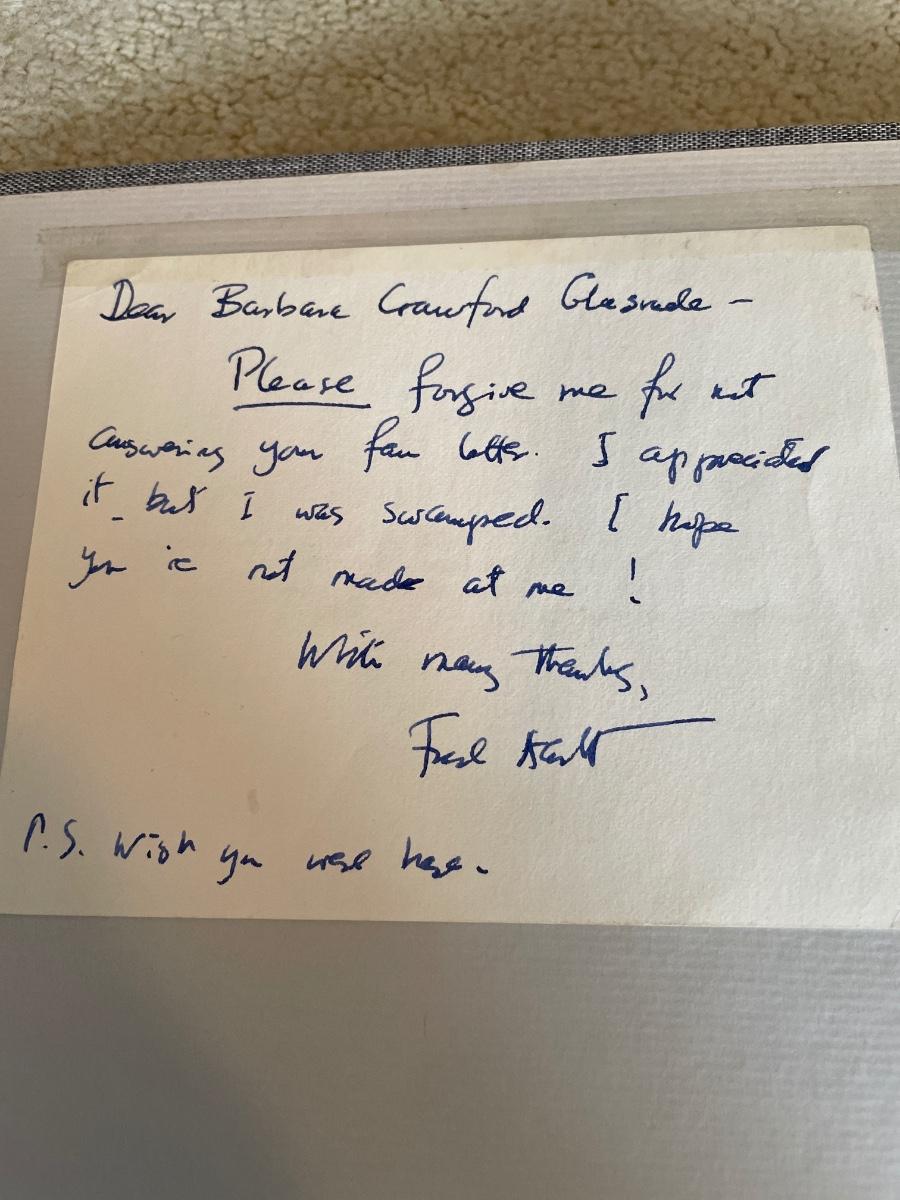 Dear Barbara Crawford Glasrude –
Please forgive me for not
answering your fan letter. I appreciated
it – but I was swamped. I hope
you is not made at me !
With many thanks,
Fred
P.S. Wish you were here.